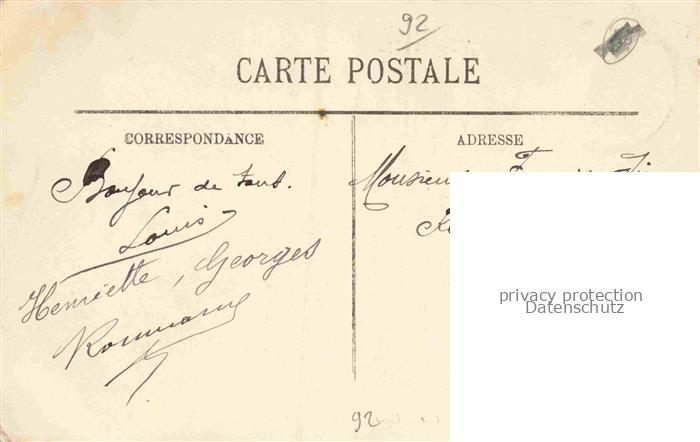 92
CARTE POSTALE
CORRESPONDANCE
Bonjour de tout.
Louis
Henriette, Georges
ADRESSE
Monsieur
privacy protection
Datenschutz
92